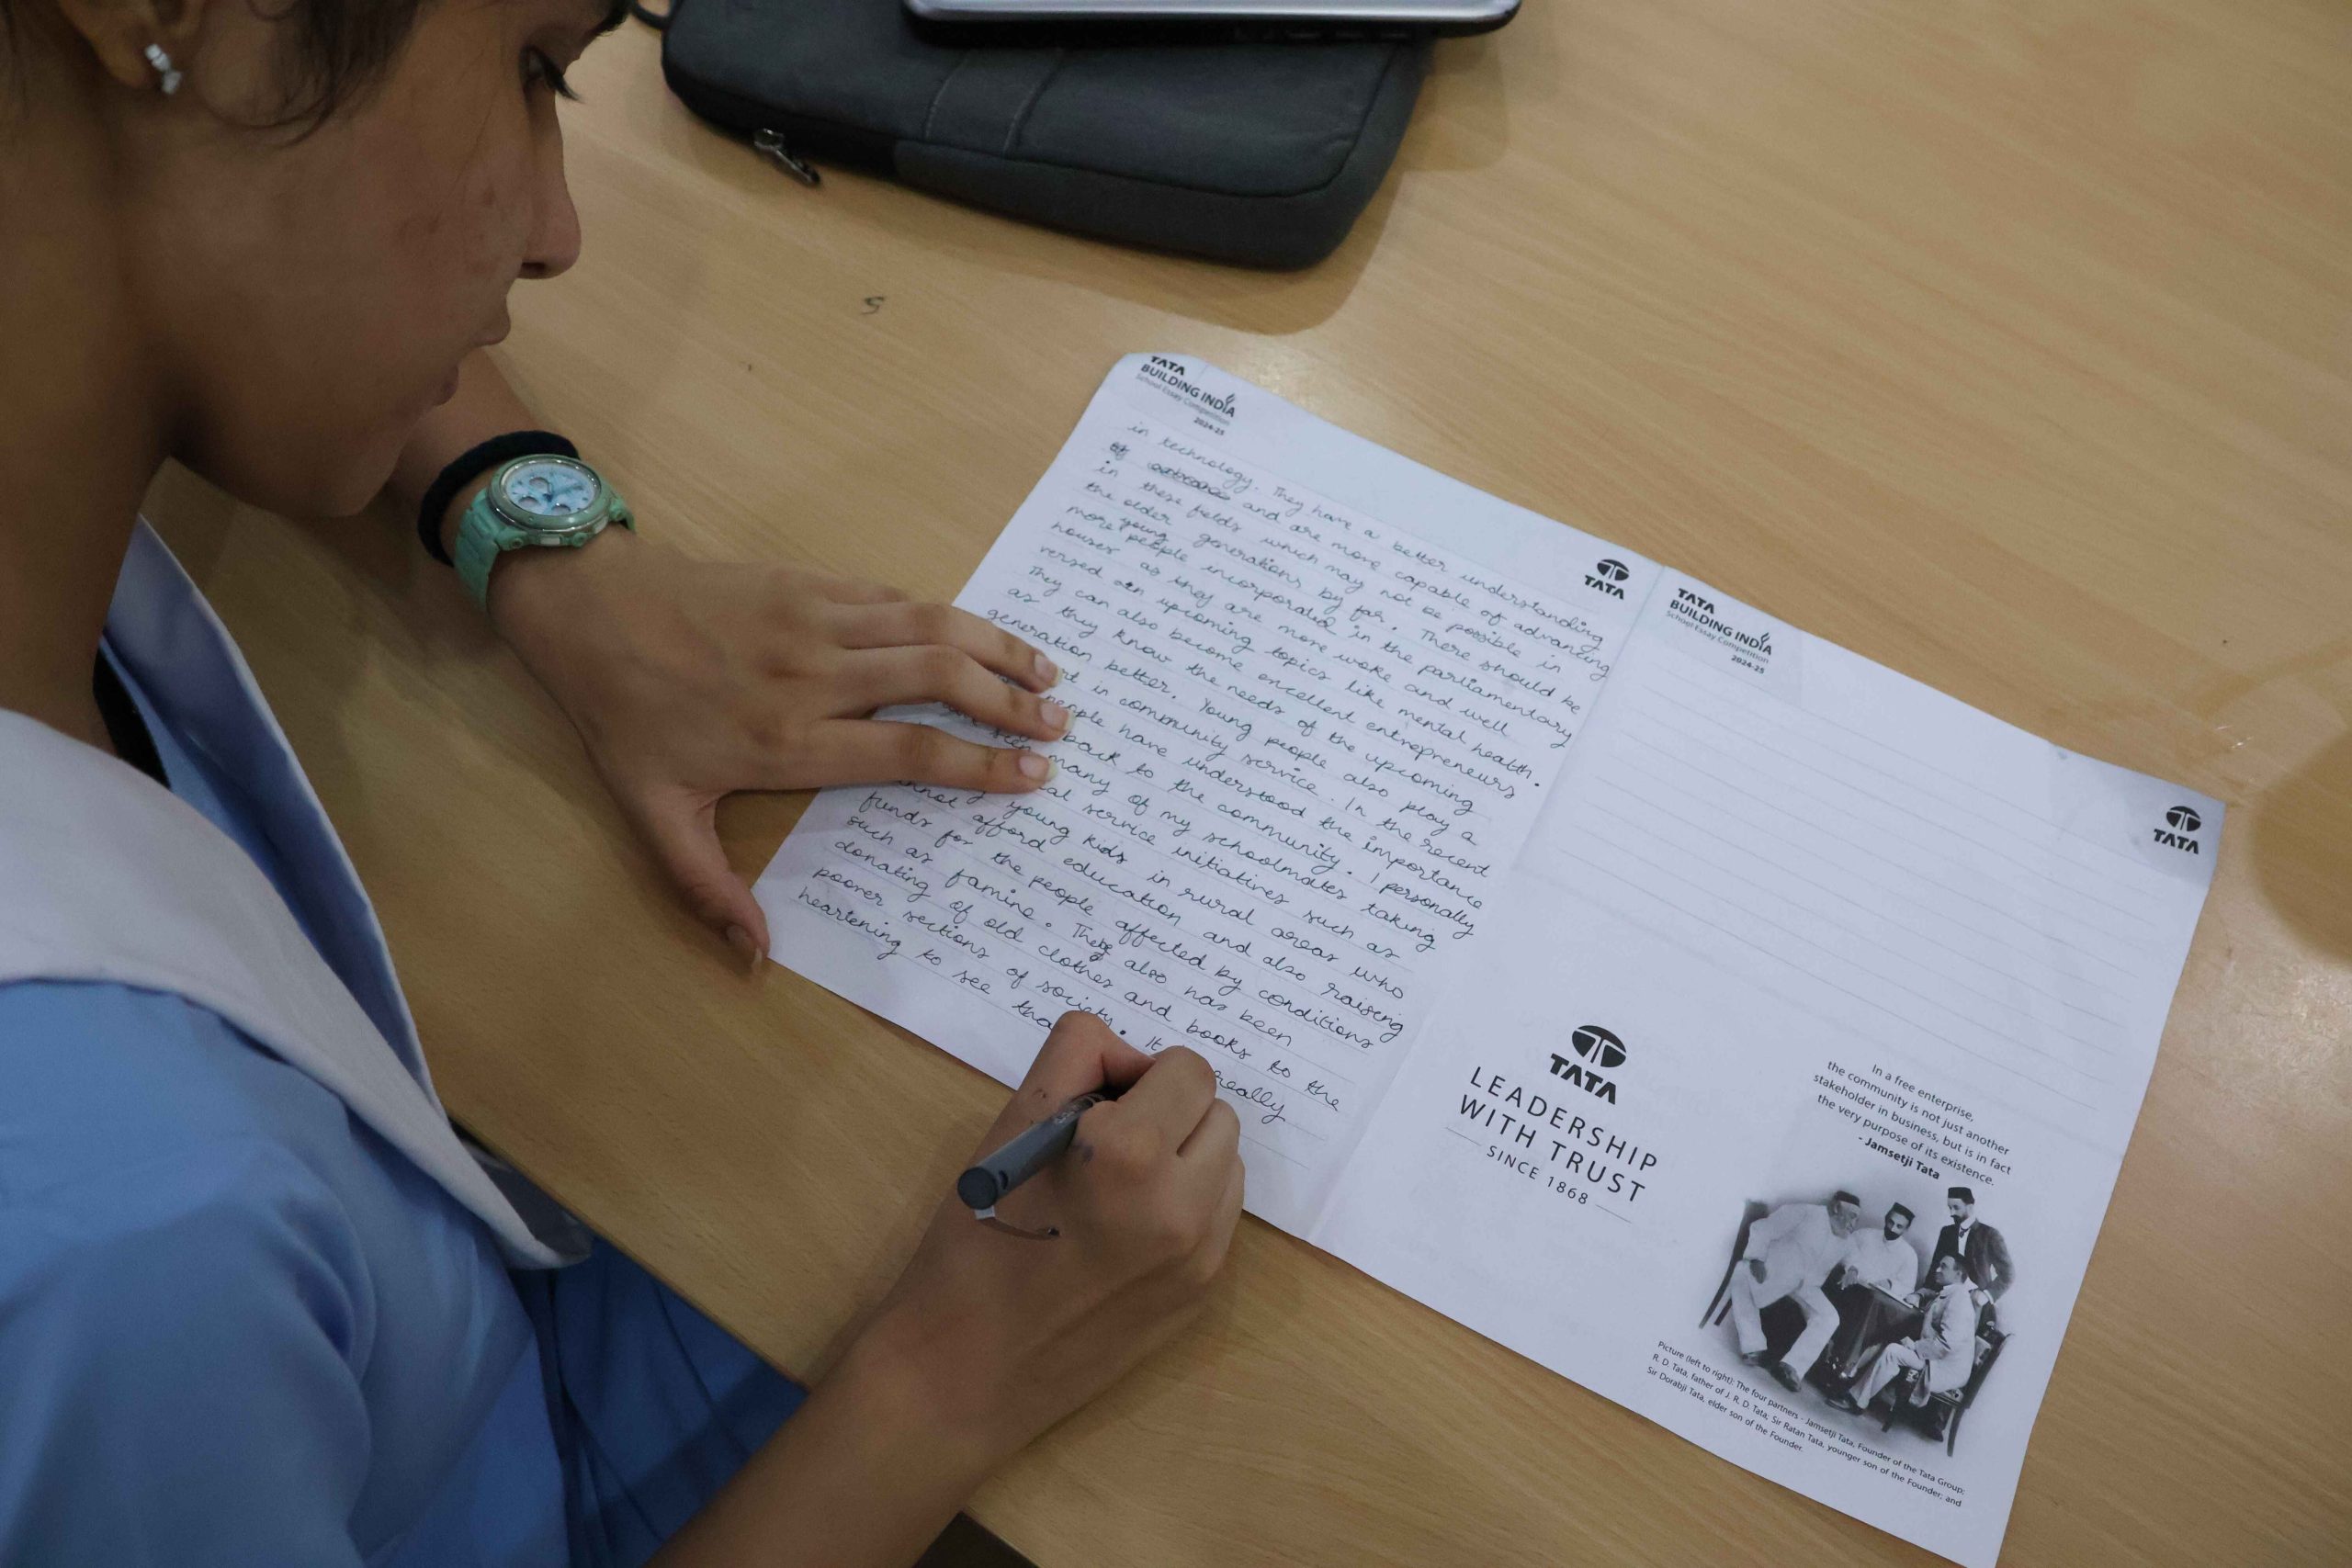 TATA
BUILDING INDIA
School Essay Competition
2024-25
TATA
in technology. They have a better understanding
of and are more capable of advancing
in these fields which may not be possible in
the older generations by far. There should be
more young people incorporated in the parliamentary
houses as they are more woke and well
versed in upcoming topics like mental health.
They can also become excellent entrepreneurs
as they know the needs of the upcoming
generation better. Young people also play a
in community service. In the recent
people have understood the importance
back to the community. I personally
seen many of my schoolmates taking
service initiatives such as
young kids in rural areas who
cannot afford education and also raising
funds for the people affected by conditions
such as famine. There also has been
donating of old clothes and books to the
poorer sections of society. It really
heartening to see
TATA
BUILDING INDIA
School Essay Competition
2024-25
TATA
TATA
LEADERSHIP
WITH TRUST
SINCE 1868
In a free enterprise,
the community is not just another
stakeholder in business, but is in fact
the very purpose of its existence.
- Jamsetji Tata
Picture (left to right): The four partners - Jamsetji Tata, Founder of the Tata Group;
R. D. Tata, father of J. R. D. Tata, Sir Ratan Tata, younger son of the Founder; and
Sir Dorabji Tata, elder son of the Founder.
5